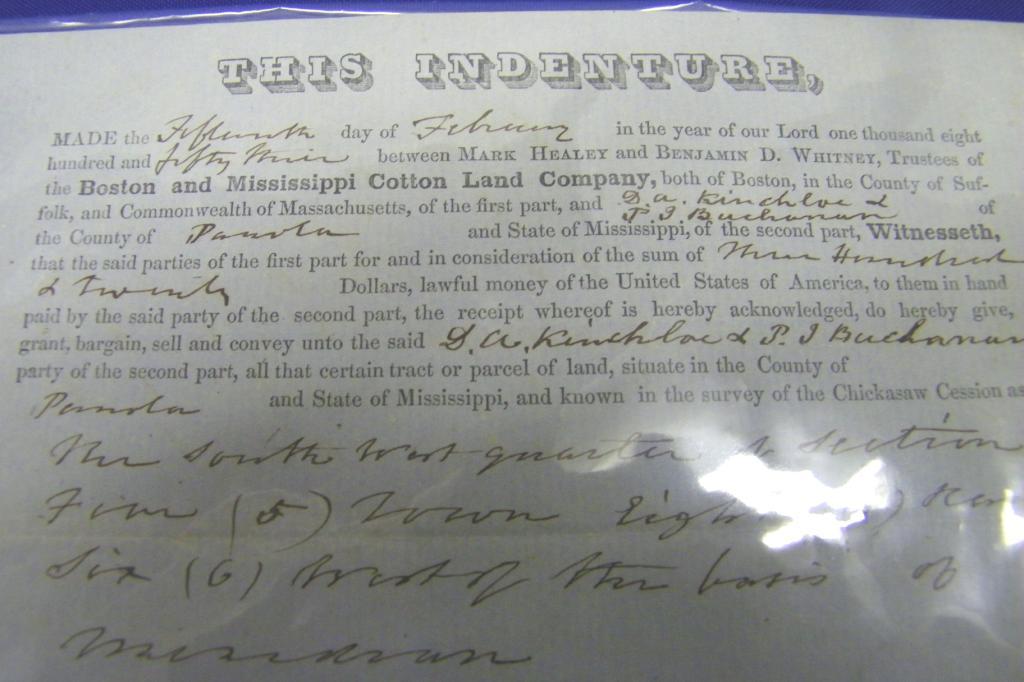 THIS INDENTURE,
MADE the Fifteenth day of February in the year of our Lord one thousand eight
hundred and fifty Nine between MARK HEALEY and BENJAMIN D. WHITNEY, Trustees of
the Boston and Mississippi Cotton Land Company, both of Boston, in the County of Suf-
folk, and Commonwealth of Massachusetts, of the first part, and D. A. Kinchloe & P. J Buchanan of
the County of Panola and State of Mississippi, of the second part, Witnesseth,
that the said parties of the first part for and in consideration of the sum of Three Hundred
& twenty Dollars, lawful money of the United States of America, to them in hand
paid by the said party of the second part, the receipt whereof is hereby acknowledged, do hereby give,
grant, bargain, sell and convey unto the said D. A. Kinchloe & P. J Buchanan
party of the second part, all that certain tract or parcel of land, situate in the County of
Panola and State of Mississippi, and known in the survey of the Chickasaw Cession as
The South West quarter of Section
Five (5) Town
Six (6) West of the basis of
Meridian